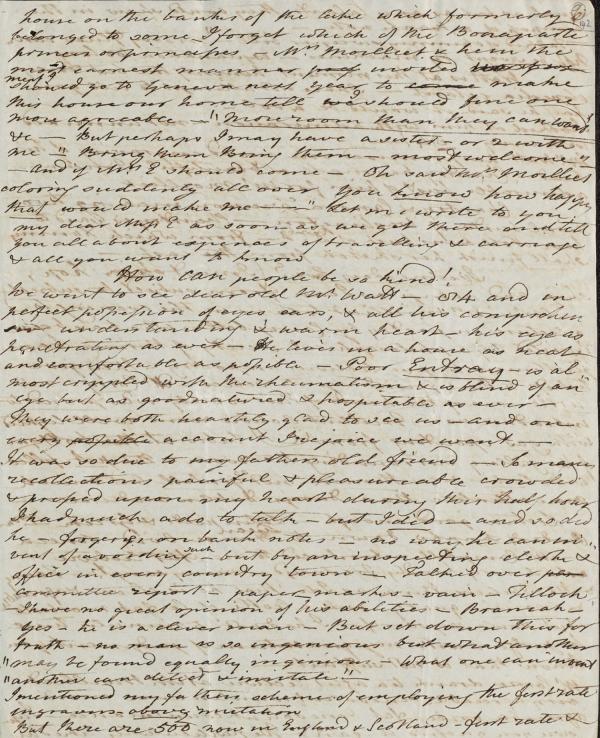 house on the banks of the lake which formerly
belonged to some I forget which of the Bonaparte
princes or princesses - Mrs Moilliet & hem the
most earnest manner invited
should go to Geneva next year to make
this house our home till we should find one
more agreeable - "More room than they can want"
&c - But perhaps I may have a sister - or 2 with
me - "Bring them Bring them - most welcome"
- and if Mrs E should come - Oh said Mrs Moilliet
coloring suddenly all over You know how happy
that would make me - " Let me write to you
my dear Miss E as soon as we get there and tell
you all about expences of travelling & carriage
& all you want to know
How can people be so kind!
We went to see dear old Mr. Watt - 84 and in
perfect possession of eyes ears, & all his comprehen
understanding & warm heart - his eye as
penetrating as ever - He lives in a house as neat
and comfortable as possible - Poor Entray - is al"
most crippled with the rheumatism & is blind of an
eye but as goodnatured & hospitable as ever
They were both heartily glad to see us - and on
every possible account I rejoice we went -
It was so due to my father's old friend - So many
recollections painful & pleasureable crowded
& pressed upon my heart during this half hour
I had much ado to talk - but I did - and so did
he - forgery on bank notes - no way he can in"
vent of avoiding such - but by an inspecting clerk &
office in every country town - Talked over
committee report - paper-marks - vain - Tilloch
- I have no great opinion of his abilities - Bramah -
yes - he is a clever man - But set down this for
truth - no man is so ingenious but what another
"may be found equally ingenious - what one can invent
"another can detect & imitate"-
I mentioned my fathers scheme of employing the first rate
engravers above imitation
But there are 500 now in England & Scotland - first rate &